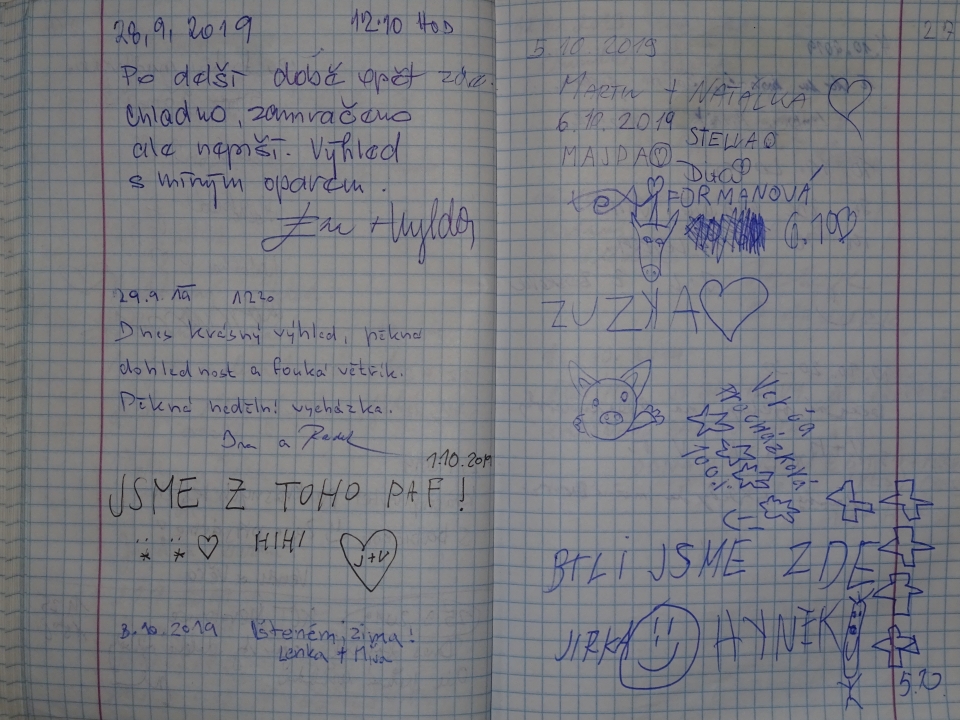 28.9. 2019 12.10 HOD
Po delší době opět
chladno, zamračeno
ale neprší. Výhled
s mírným oparem.
29.9. 19 1220
Dnes krásný výhled, pěkná
dohlednost a fouká větřík.
Pěkná nedělní vycházka.
a Radek
1.10.2019
JSME Z TOHO PAF!
HIHI
J+V
3.10.2019 zima!
Lenka + Míra
27
5.10.2019
MARTIN + NATÁLKA
6.10.2019
STELLA
MAJDA
FORMANOVÁ
6.10
ZUZKA
Verča
Procházková
100%
BYLI JSME ZDE
JIRKA HYNEK
5.10.